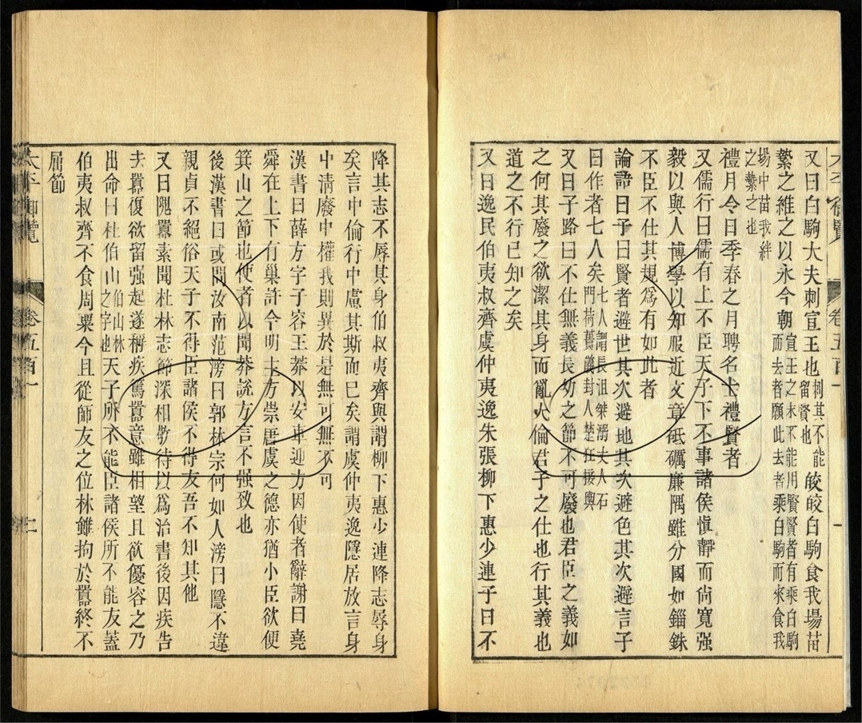 又曰白駒大夫刺宣王也刺其不能留賢也皎皎白駒食我場苗
縶之維之以永今朝宣王之末不能用賢賢者有乘白駒而去者願此去者乘白駒而來食我
場中苗我絆之縶之也
禮月令曰季春之月聘名士禮賢者
又儒行曰儒有上不臣天子下不事諸侯慎靜而尚寬强
毅以與人博學以知服近文章砥礪廉隅雖分國如錙銖
不臣不仕其規爲有如此者
論語曰子曰賢者避世其次避地其次避色其次避言子
曰作者七人矣七人謂長沮桀溺丈人石門荷蕢儀封人楚狂接輿
又曰子路曰不仕無義長幼之節不可廢也君臣之義如
之何其廢之欲潔其身而亂大倫君子之仕也行其義也
道之不行已知之矣
又曰逸民伯夷叔齊虞仲夷逸朱張柳下惠少連子曰不
太平御覽
卷五百一
一
降其志不辱其身伯叔夷齊與謂柳下惠少連降志辱身
矣言中倫行中慮其斯而已矣謂虞仲夷逸隱居放言身
中清廢中權我則異於是無可無不可
漢書曰薛方字子容王莽以安車迎方因使者辭謝曰堯
舜在上下有巢許今明主方崇唐虞之德亦猶小臣欲使
箕山之節也使者以聞莽說方言不强致也
後漢書曰或問汝南范滂曰郭林宗何如人滂曰隱不違
親貞不絕俗天子不得臣諸侯不得友吾不知其他
又曰隗囂素聞杜林志節深相敬待以爲治書後因疾告
去囂復欲留强起遂稱疾篤囂意雖相望且欲優容之乃
出命曰杜伯山伯山林之字也天子所不能臣諸侯所不能友蓋
伯夷叔齊不食周粟今且從師友之位林雖拘於囂終不
屈節
太平御覽
卷五百一
二